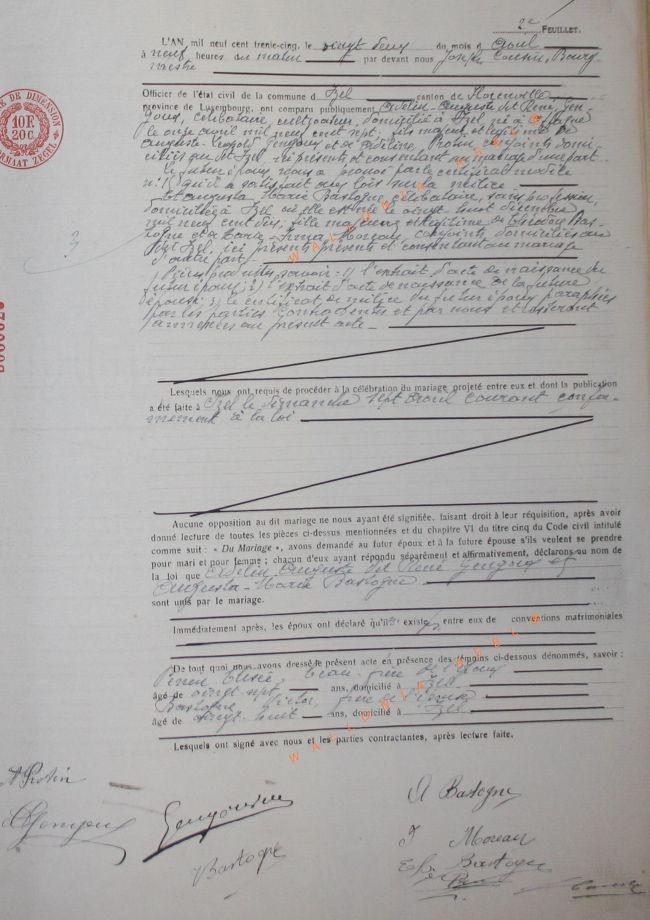 2e FEUILLET.
L'AN, mil neuf cent trente-cinq, le vingt deux du mois d'avril
à neuf heures du matin par devant nous Joseph Bourg
mestre
Officier de l'état civil de la commune d'Izel canton de Florenville
province de Luxembourg, ont comparu publiquement Adelin-Auguste del René Gen
goux, célibataire, cultivateur, domicilié à Izel né à
le onze avril mil neuf cent sept. fils majeur et légitime de
Auguste Léopold Gengoux et de Protin, conjoints domi
ciliés au dit Izel ici présents et consentant au mariage d'une part
Le futur époux nous a prouvé par le certificat modèle
n° 15 qu'il a satisfait aux lois sur la milice
Et Augusta Marie Bastogne célibataire, sans profession,
domiciliée à Izel où elle est née le vingt huit décembre
mil neuf cent dix; fille majeure et légitime de Bas
togne et de Marie-Irma Moreau conjoints domiciliés au
dit Izel, ici présents présents et consentant au mariage
d'autre part
Pièces produites, savoir: 1) l'extrait d'acte de naissance du
futur époux; 2) l'extrait d'acte de naissance de la future
épouse; 3) le certificat de milice du futur époux paraphées
par les parties contractantes et par nous et resteront
annexées au présent acte
3
Lesquels nous ont requis de procéder à la célébration du mariage projeté entre eux et dont la publication
a été faite à Izel le dimanche sept avril courant confor
mément à la loi
Aucune opposition au dit mariage ne nous ayant été signifiée, faisant droit à leur réquisition, après avoir
donné lecture de toutes les pièces ci-dessus mentionnées et du chapitre VI du titre cinq du Code civil intitulé
comme suit : « Du Mariage », avons demandé au futur époux et à la future épouse s'ils veulent se prendre
pour mari et pour femme ; chacun d'eux ayant répondu séparément et affirmativement, déclarons au nom de
la loi que Adelin Auguste del René Gengoux et
Augusta-Marie Bastogne
sont unis par le mariage.
Immédiatement après, les époux ont déclaré qu'il existe entre eux de conventions matrimoniales
De tout quoi nous avons dressé le présent acte en présence des témoins ci-dessous dénommés, savoir :
Elisée, beau-frère de l'époux
âgé de vingt sept ans, domicilié à Izel
Bastogne Victor, frère de l'épouse
âgé de vingt huit ans, domicilié à Izel
Lesquels ont signé avec nous et les parties contractantes, après lecture faite.
A Protin
Gengoux
Bastogne
A Bastogne
I Moreau
Bastogne
DE DIMENSION
10F
20C
FORMAAT ZEGEL